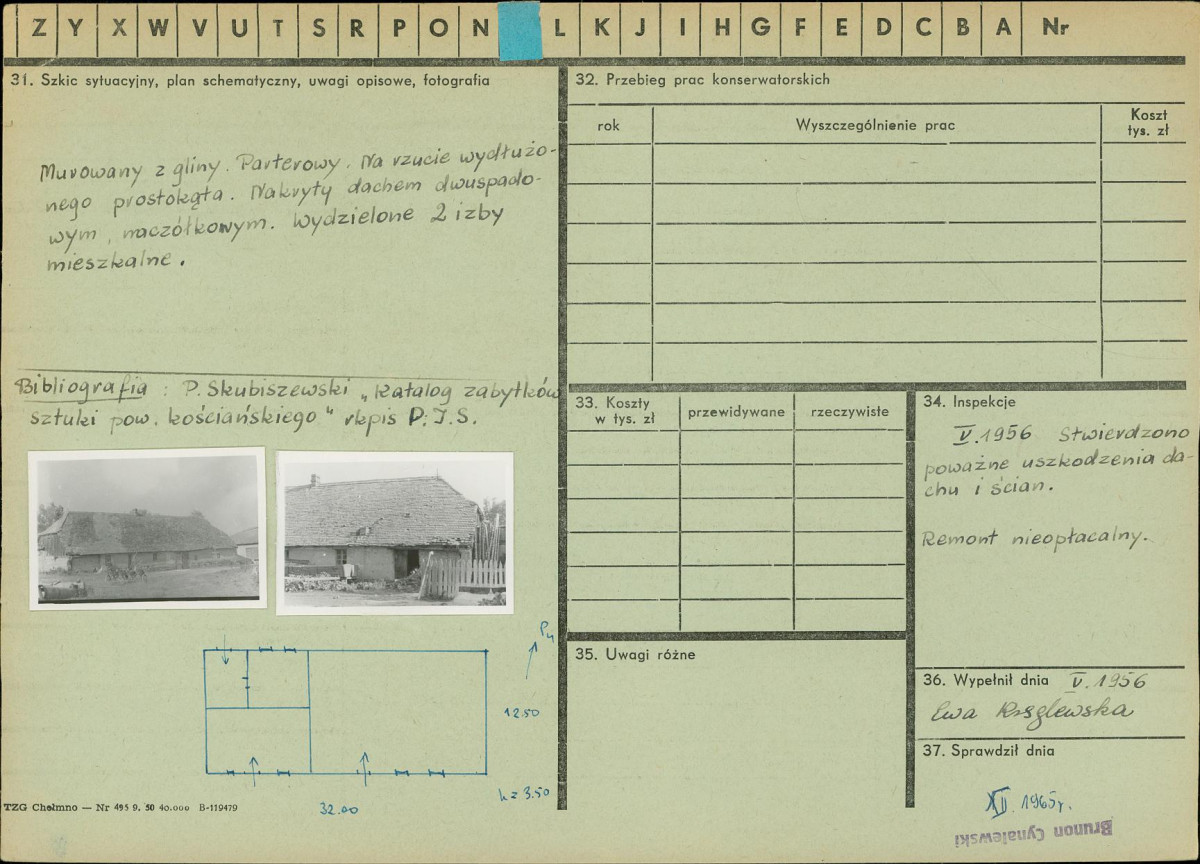 Z Y X W V U T S R P O N L K J I H G F E D C B A Nr
31. Szkic sytuacyjny, plan schematyczny, uwagi opisowe, fotografia
Murowany z gliny. Parterowy. Na rzucie wydłużo-
nego prostokąta. Nakryty dachem dwuspado-
wym, naczółkowym. Wydzielone 2 izby
mieszkalne.
Bibliografia : P. Skubiszewski „Katalog zabytków
sztuki pow. kościańskiego" rkpis P.I.S.
Pn
12.50
h = 3.50
32.00
TZG Chełmno — Nr 495 9. 50 40.000 B-119479
32. Przebieg prac konserwatorskich
rok
Wyszczególnienie prac
Koszt
tys. zł
33. Koszty
w tys. zł
przewidywane
rzeczywiste
34. Inspekcje
V.1956 Stwierdzono
poważne uszkodzenia da-
chu i ścian.
Remont nieopłacalny.
35. Uwagi różne
36. Wypełnił dnia V.1956
Ewa
37. Sprawdził dnia
XII. 1965r.
Brunon Cynalewski